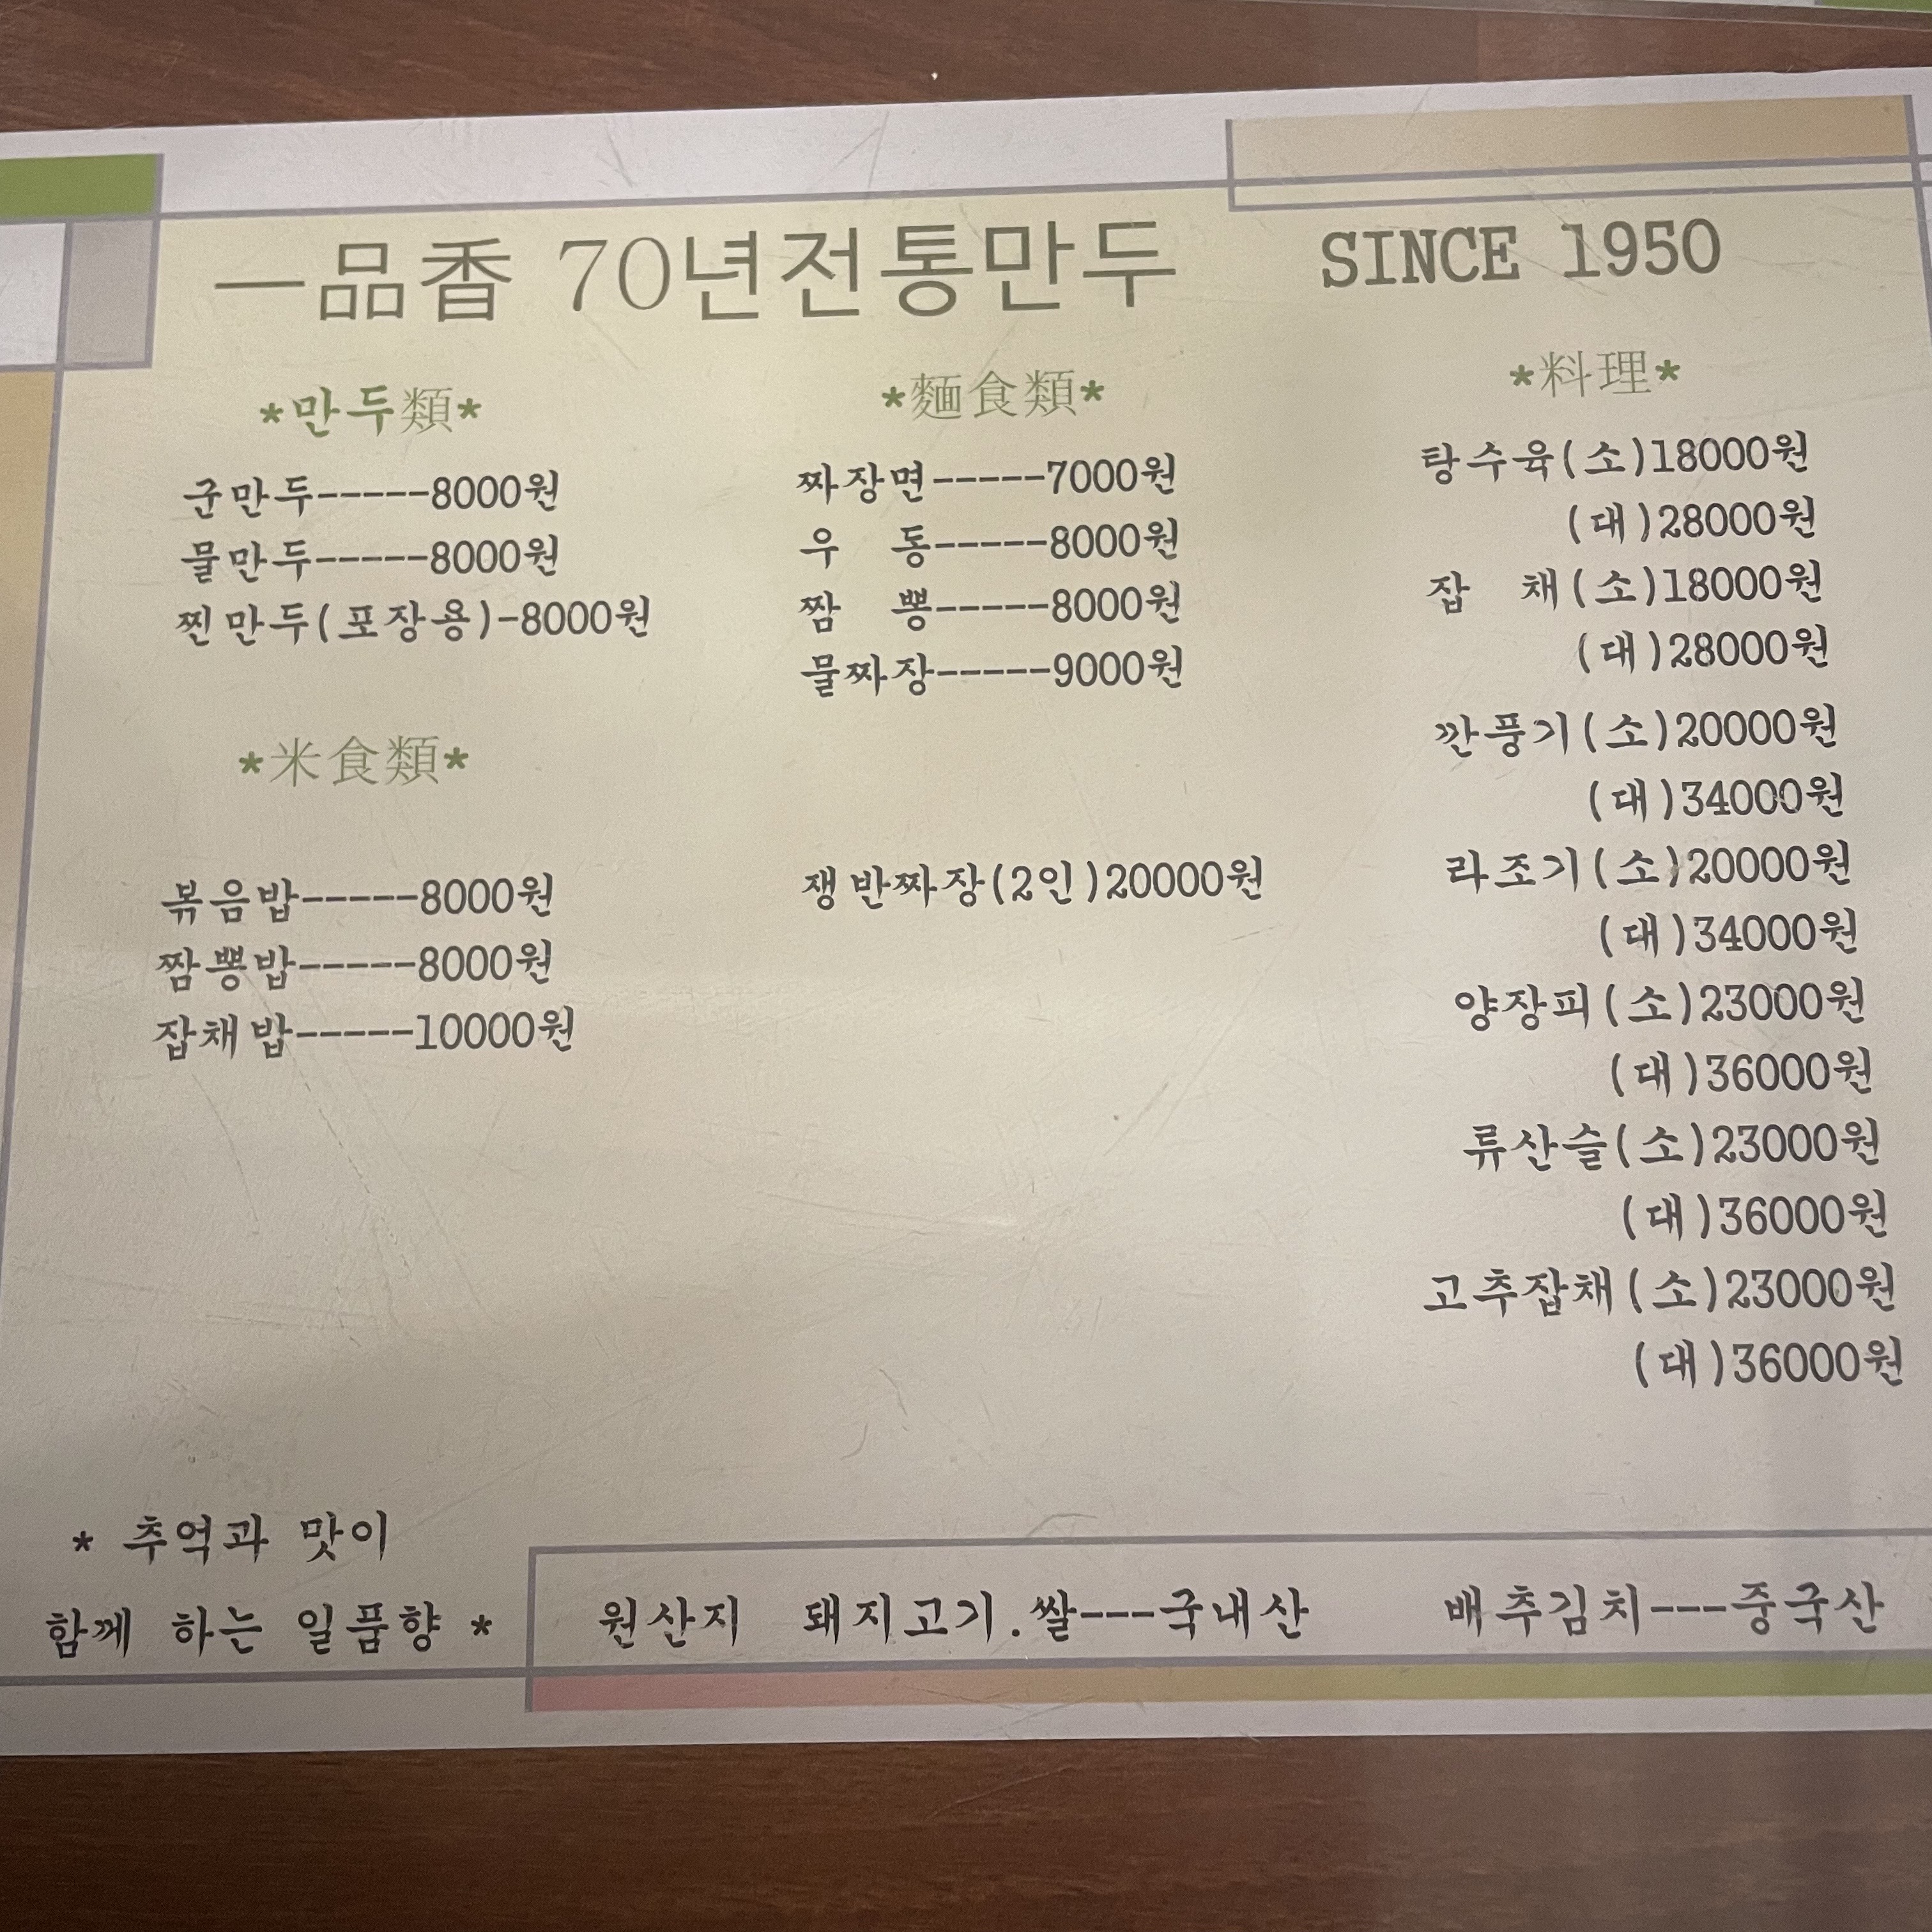 一品香 70년전통만두 SINCE 1950
*만두類*
군만두-----8000원
물만두-----8000원
찐만두(포장용)-8000원
*米食類*
볶음밥-----8000원
짬뽕밥-----8000원
잡채밥-----10000원
*麵食類*
짜장면-----7000원
우 동-----8000원
짬 뽕-----8000원
물짜장-----9000원
쟁반짜장(2인)20000원
*料理*
탕수육(소)18000원
(대)28000원
잡 채(소)18000원
(대)28000원
깐풍기(소)20000원
(대)34000원
라조기(소)20000원
(대)34000원
양장피(소)23000원
(대)36000원
류산슬(소)23000원
(대)36000원
고추잡채(소)23000원
(대)36000원
* 추억과 맛이
함께 하는 일품향 *
원산지 돼지고기.쌀---국내산 배추김치---중국산